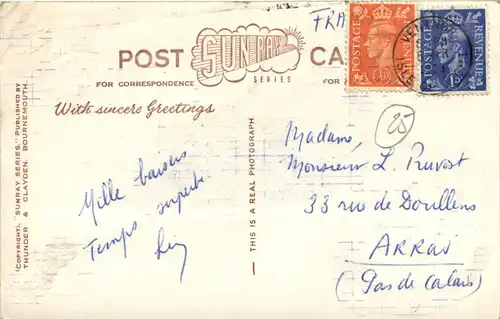 FRA
POST CA
SUNRAY
SERIES
FOR CORRESPONDENCE
FOR
With sincere Greetings
POSTAGE REVENUE
POSTAGE REVENUE
1D
25
Mille baisers
Temps superbe
Madame,
Monsieur L. Pruvost
33 rue de Doullens
ARRAS
(Pas de Calais)
THIS IS A REAL PHOTOGRAPH
(COPYRIGHT. "SUNRAY SERIES." PUBLISHED BY
THUNDER & CLAYDEN, BOURNEMOUTH